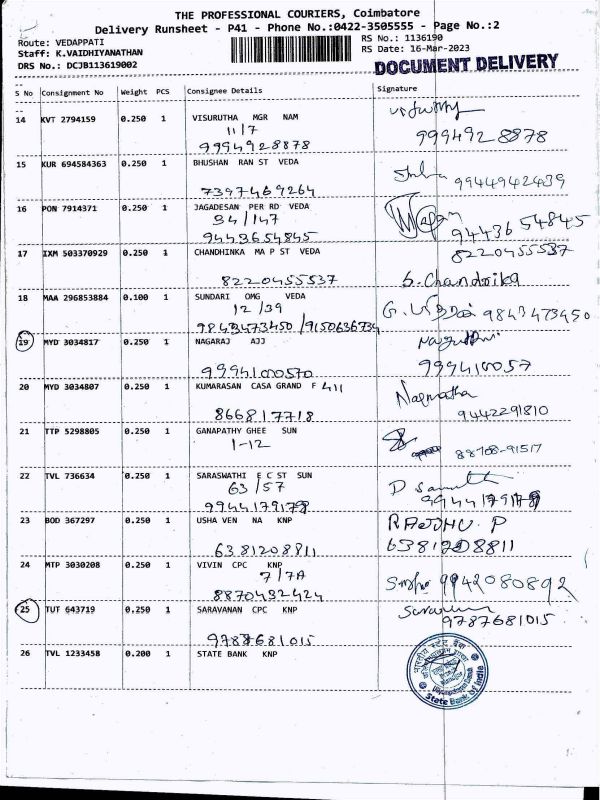 THE PROFESSIONAL COURIERS, Coimbatore
Delivery Runsheet - P41 - Phone No.:0422-3505555 - Page No.:2
Route: VEDAPPATI RS No.: 1136190
Staff: K.VAIDHIYANATHAN RS Date: 16-Mar-2023
DRS No.: DCJB113619002 DOCUMENT DELIVERY
S No Consignment No Weight PCS Consignee Details Signature
14 KVT 2794159 0.250 1 VISURUTHA MGR NAM
11/7
9994928878 9994928878
15 KUR 694584363 0.250 1 BHUSHAN RAN ST VEDA
7397469264 9944942439
16 PON 7914371 0.250 1 JAGADESAN PER RD VEDA
94/147
9443654845 9443654845
17 IXM 503370929 0.250 1 CHANDHINKA MA P ST VEDA 8220455537
8220455537 S. Chandrika
18 MAA 296853884 0.100 1 SUNDARI OMG VEDA
12/39
9843473450 /9150636734 9843473450
19 MYD 3034817 0.250 1 NAGARAJ AJJ
9994100570 999410057
20 MYD 3034807 0.250 1 KUMARASAN CASA GRAND F 411
8668177718 9442291810
21 TTP 5298805 0.250 1 GANAPATHY GHEE SUN
1-12 88708-91517
22 TVL 736634 0.250 1 SARASWATHI E C ST SUN
63/57
9944179178 9944179178
23 BOD 367297 0.250 1 USHA VEN NA KNP
6381208811 6381208811
24 MTP 3030208 0.250 1 VIVIN CPC KNP
7/7A
8870432424 9942080892
25 TUT 643719 0.250 1 SARAVANAN CPC KNP
9787681015 9787681015
26 TVL 1233458 0.200 1 STATE BANK KNP
State Bank of India